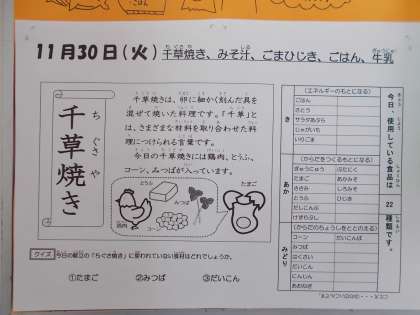 11月30日(火) 千草焼き、みそ汁、ごまひじき、ごはん、牛乳
千草焼き
ちぐさや
千草焼きは、卵に細かく刻んだ具を
混ぜて焼いた料理です。「千草」と
は、さまざまな材料を取り合わせた料
理につけられる言葉です。
今日の千草焼きには鶏肉、とうふ、
コーン、みつばが入っています。
とうふ
みつば
たまご
鶏肉
コーン
クイズ
今日の献立の「ちぐさ焼き」に使われていない食材はどれでしょうか。
①たまご ②みつば ③だいこん
今日、使用している食品は
22
種類です。
き
(エネルギーのもとになる)
ごはん
さとう
サラダあぶら
じゃがいも
いりごま
あか
(からだをつくるもとになる)
ぎゅうにゅう ぶたにく
たまご あかみそ
ささみ しろみそ
とうふ ひじき
だしこんぶ
けずりぶし
みどり
(からだのちょうしをととのえる)
コーン だいこんば
みつば
はくさい
だいこん
にんじん